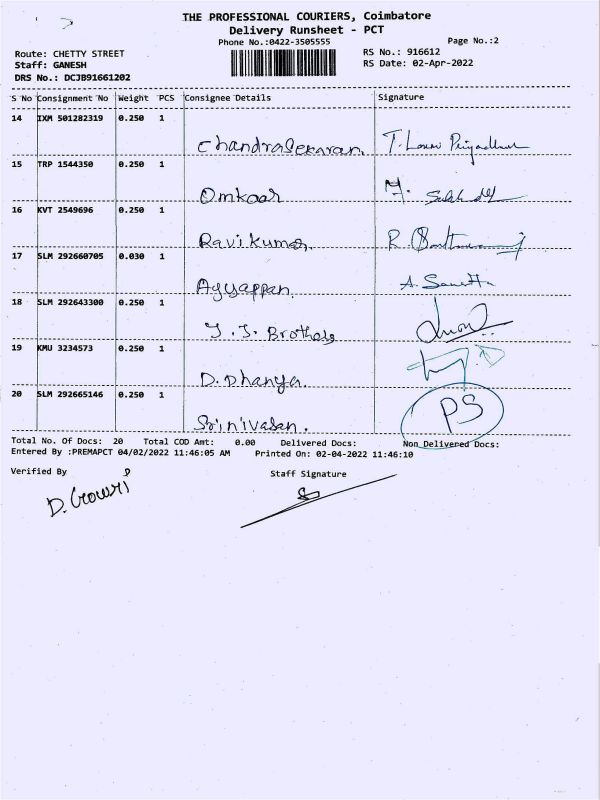 THE PROFESSIONAL COURIERS, Coimbatore
Delivery Runsheet - PCT
Phone No.:0422-3505555 Page No.:2
Route: CHETTY STREET RS No.: 916612
Staff: GANESH RS Date: 02-Apr-2022
DRS No.: DCJB91661202
S No Consignment No Weight PCS Consignee Details Signature
14 IXM 501282319 0.250 1
Chandrasekaran.
15 TRP 1544350 0.250 1
Omkaar
16 KVT 2549696 0.250 1
Ravi kumar. R.
17 SLM 292660705 0.030 1
Ayyappan. A.
18 SLM 292643300 0.250 1
J. J. Brothers
19 KMU 3234573 0.250 1
D. Dhanya.
20 SLM 292665146 0.250 1
PS
Srinivasan.
Total No. Of Docs: 20 Total COD Amt: 0.00 Delivered Docs: Non Delivered Docs:
Entered By :PREMAPCT 04/02/2022 11:46:05 AM Printed On: 02-04-2022 11:46:10
Verified By Staff Signature
D. Gowri